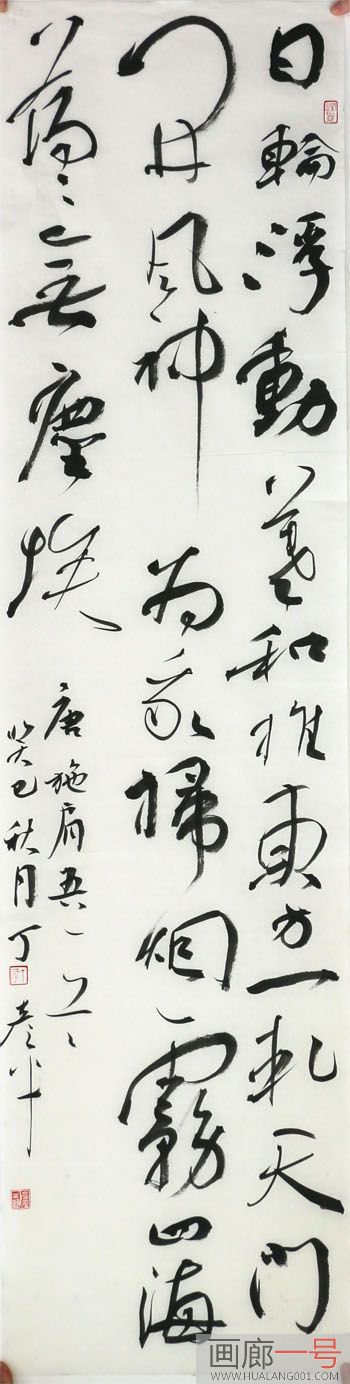 日輪浮動羲和推東方一軋天門
開風神為我掃烟霧四海
蕩〻無塵埃
唐施肩吾
癸巳秋月丁
画廊一号
WWW.HUALANG001.COM